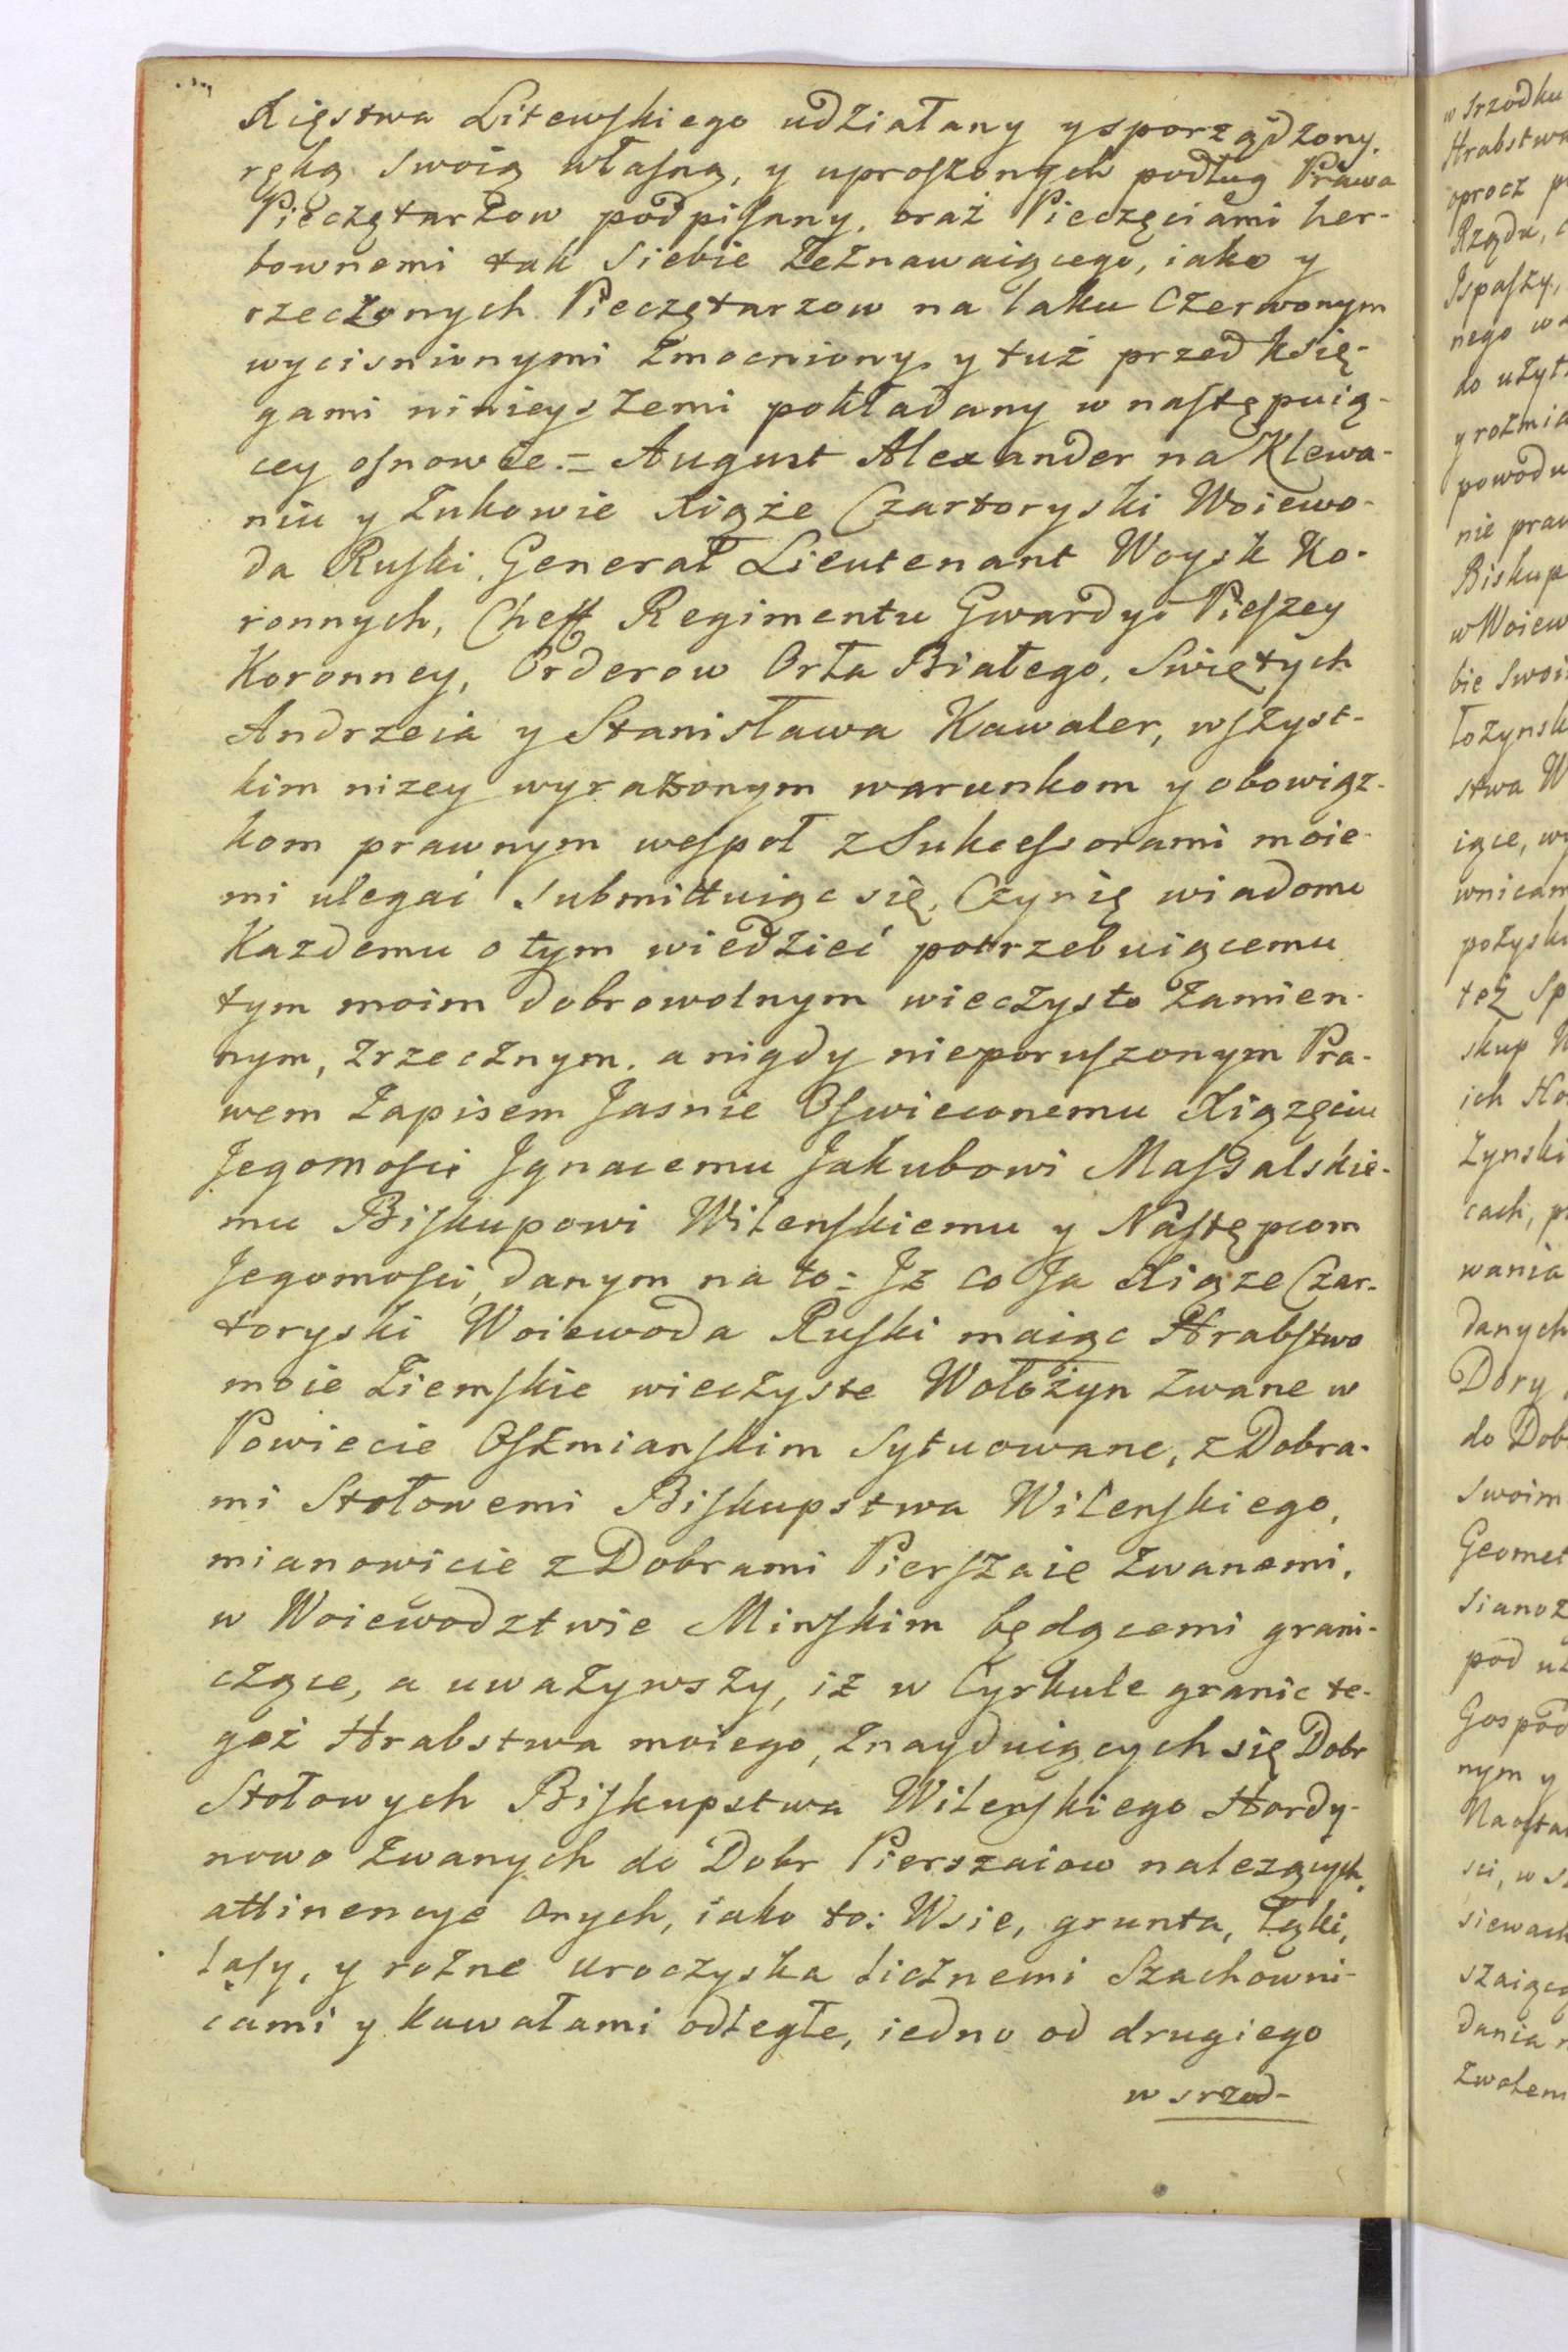 Xięstwa Litewskiego udziałany y sporządzony.
ręką swoią własną, y uproszonych podług Prawa
Pieczętarzow podpisany, oraż Pieczęciami her-
bownemi tak Siebie Zeznawaiącego, iako y
rzeczonych Pieczętarzow na laku Czerwonym
wycisnionymi zmocniony, y tuż przed Księ-
gami ninieyszemi pokładany w następuią-
cey osnowie. = August Alexander na Klewa-
niu y Żukowie Xiąże Czartoryski Woiewo-
da Ruski, Generał Lieutenant Woysk Ko-
ronnych, Cheff Regimentu Gwardyi Pieszey
Koronney, Orderow Orła Białego, Swiętych
Andrzeia y Stanisława Kawaler, wszyst-
kim nizey wyrażonym warunkom y obowiąz-
kom prawnym wespoł z Sukcessorami moie-
mi ulegać Submittuiąc się, Czynię wiadomo
Kazdemu o tym wiedzieć potrzebuiącemu
tym moim dobrowolnym wieczysto Zamien-
nym, zrzecznym, a nigdy nieporuszonym Pra-
wem Zapisem Jasnie Oswieconemu Xiązęciu
Jegomosci Jgnacemu Jakubowi Massalskie-
mu Biskupowi Wilenskiemu y Następcom
Jegomosci, danym na to: Jż co Ja Xiąze Czar-
toryski Woiewoda Ruski maiąc Hrabstwo
moie Ziemskie wieczyste Wołożyn zwane w
Powiecie Oszmianskim Sytuowane, z Dobra-
mi Stołowemi Biskupstwa Wilenskiego,
mianowicie z Dobrami Pierszaie zwanemi,
w Woiewodztwie Minskim będącemi grani-
czące, a uważywszy, iż w Cyrkule granic te-
goż Hrabstwa moiego, znayduiących się Dobr
Stołowych Biskupstwa Wilenskiego Hordy-
nowo zwanych do Dobr Pierszaiow nalezących,
attinencye onych, iako to: Wsie, grunta, Łąki,
lasy, y rożne uroczyska licznemi Szachowni-
cami y kawałami odległe, iedno od drugiego
w srzod-
w srzodku
Hrabstwa
oprocz
Rządu,
nego
powodu
nie
Biskup
w Woiew
bie
stwa W
iące,
też
skup
ich
cach,
wania
danych
Dory
do Dob
Swoim
Geomet
pod
Gospod
nym y
siewach
dania